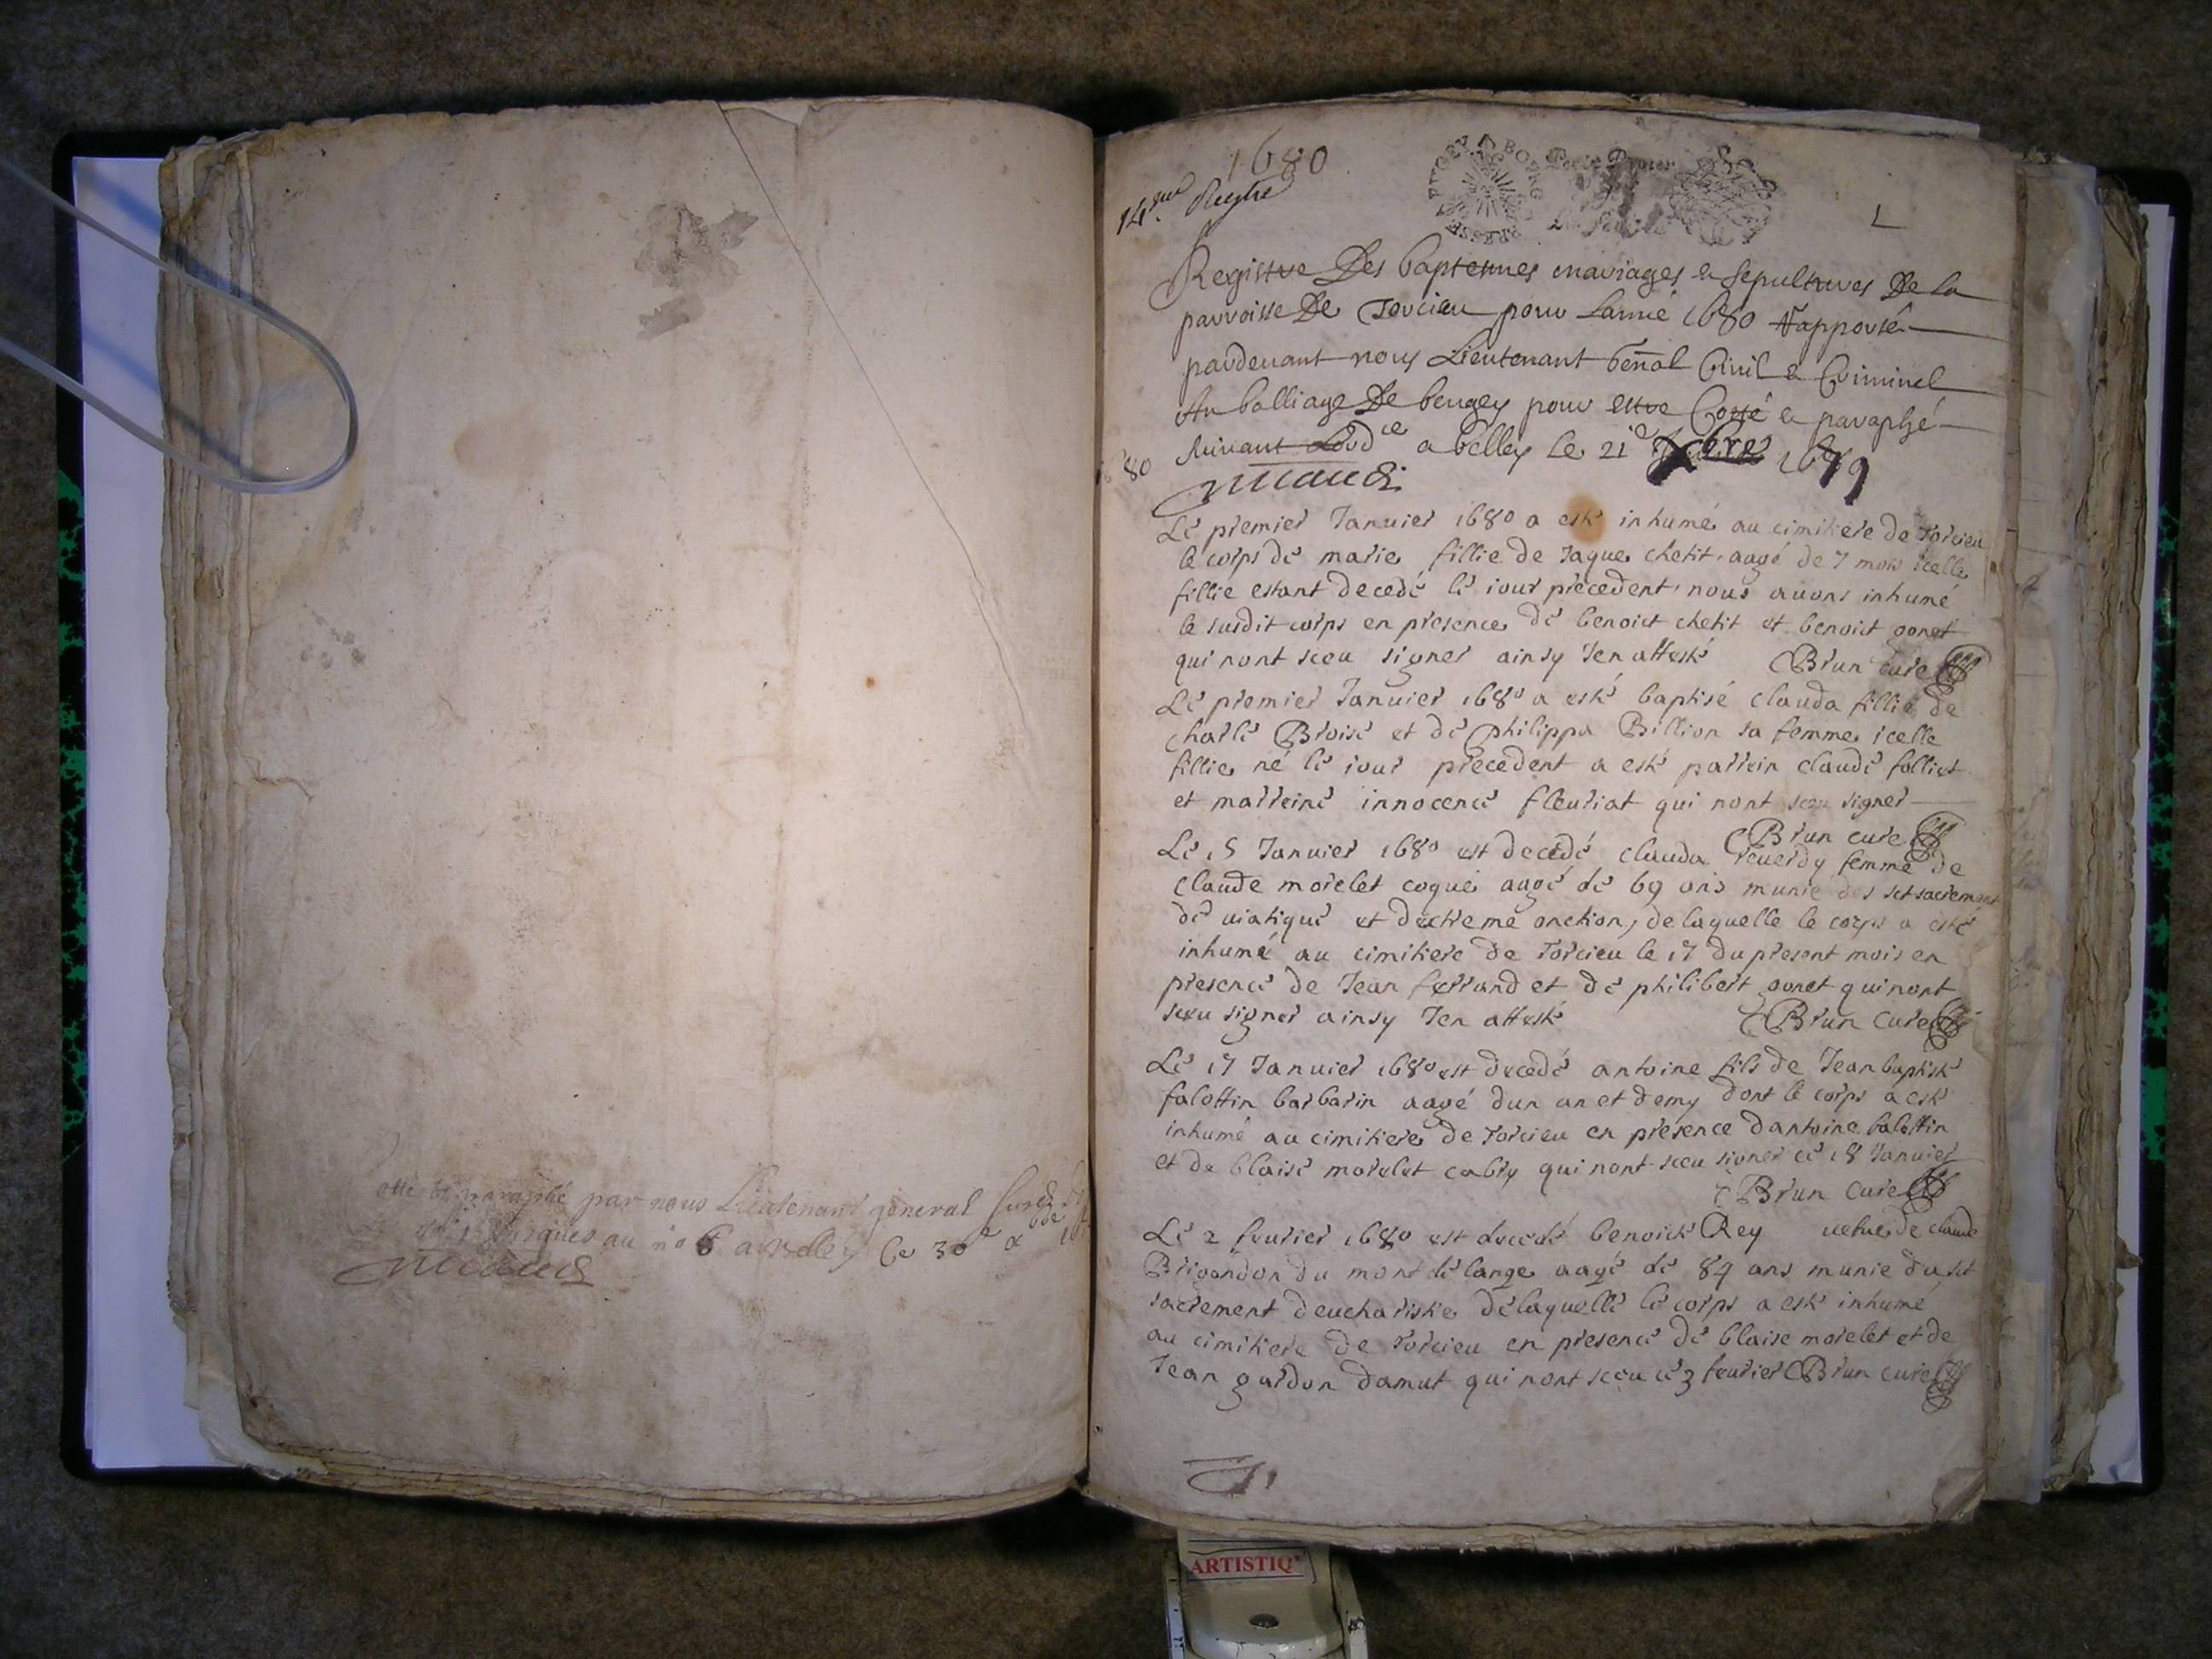 par nous Lieutenant general
au n° 6 a belley le 30e
1680
14me Regtre
Registre Des baptesmes mariages & sepultures De la
parroisse De Torcieu pour Lanné 1680 Rapporté
pardeuant nous Lieutenant genãl Ciuil & Criminel
Au balliage De beugey pour estre Cotté & paraphé
suiuant Lordce a belley le 21e Xbre 1679
1680
Le premier Januier 1680 a esté inhumé au cimitiere de Torcieu
le corps de marie fillie de Jaque chetit aagé de 7 mois icelle
fillie estant decedé le iour precedent nous auons inhumé
le susdit corps en presence de benoict chetit et benoict gonet
qui nont sceu signer ainsy Jen atteste Brun cure
Le premier Januier 1680 a esté baptisé clauda fillie de
charle Broise et de philippa Billion sa femme icelle
fillie né le iour precedent a esté parrein claude folliet
et marreine innocence fleuriat qui nont sceu signer
Brun cure
Le 15 Januier 1680 est decedé clauda reuerdy femme de
claude morelet coque aagé de 69 ans munie des sct sacrement
de uiatique et dextreme onction, delaquelle le corps a esté
inhumé au cimitiere de Torcieu le 17 du present mois en
presence de Jean ferrand et de philibert gonet qui nont
sceu signer ainsy Jen atteste Brun Cure
Le 17 Januier 1680 est decedé antoine fils de Jean baptiste
falottin barbarin aagé dun an et demy dont le corps a esté
inhumé au cimitiere de Torcieu en presence dantoine falottin
et de blaise morelet cabry qui nont sceu signer ce 18 Januier
Brun Cure
Le 2 feurier 1680 est decedé benoicte Rey uefue de claude
Brigandon du mont de lange aagé de 84 ans munie du sct
sacrement deucharistie delaquelle le corps a esté inhumé
au cimitiere de Torcieu en presence de blaise morelet et de
Jean gardon damut qui nont sceu ce 3 feurier Brun cure
ARTISTIQ'